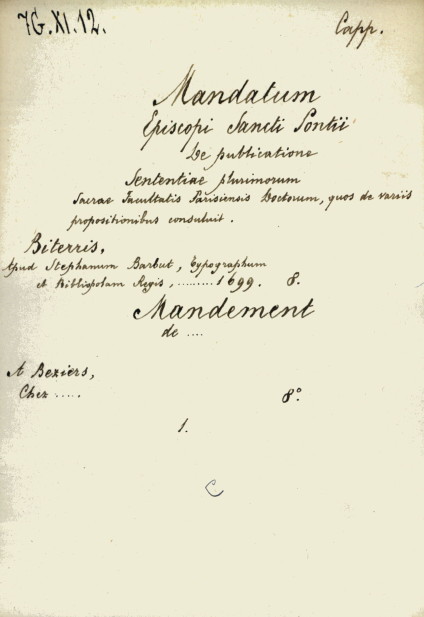 7G.XI.12.
Capp.
Mandatum
Episcopi Sancti Pontii
De publicatione
Sententiae plurimorum
Sacrae Facultatis Parisiensis Doctorum, quos de variis
propositionibus consuluit.
Biterris,
Apud Stephanum Barbut, Typographum
et Bibliopolam Regis, ......... 1699. 8.
Mandement
de ....
A Beziers,
Chez .....
8°
1.
C